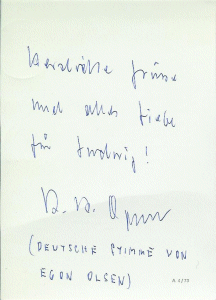 Herzliche Grüße
und alles Liebe
für Ludwig!
K. H. O
(DEUTSCHE STIMME VON
EGON OLSEN)